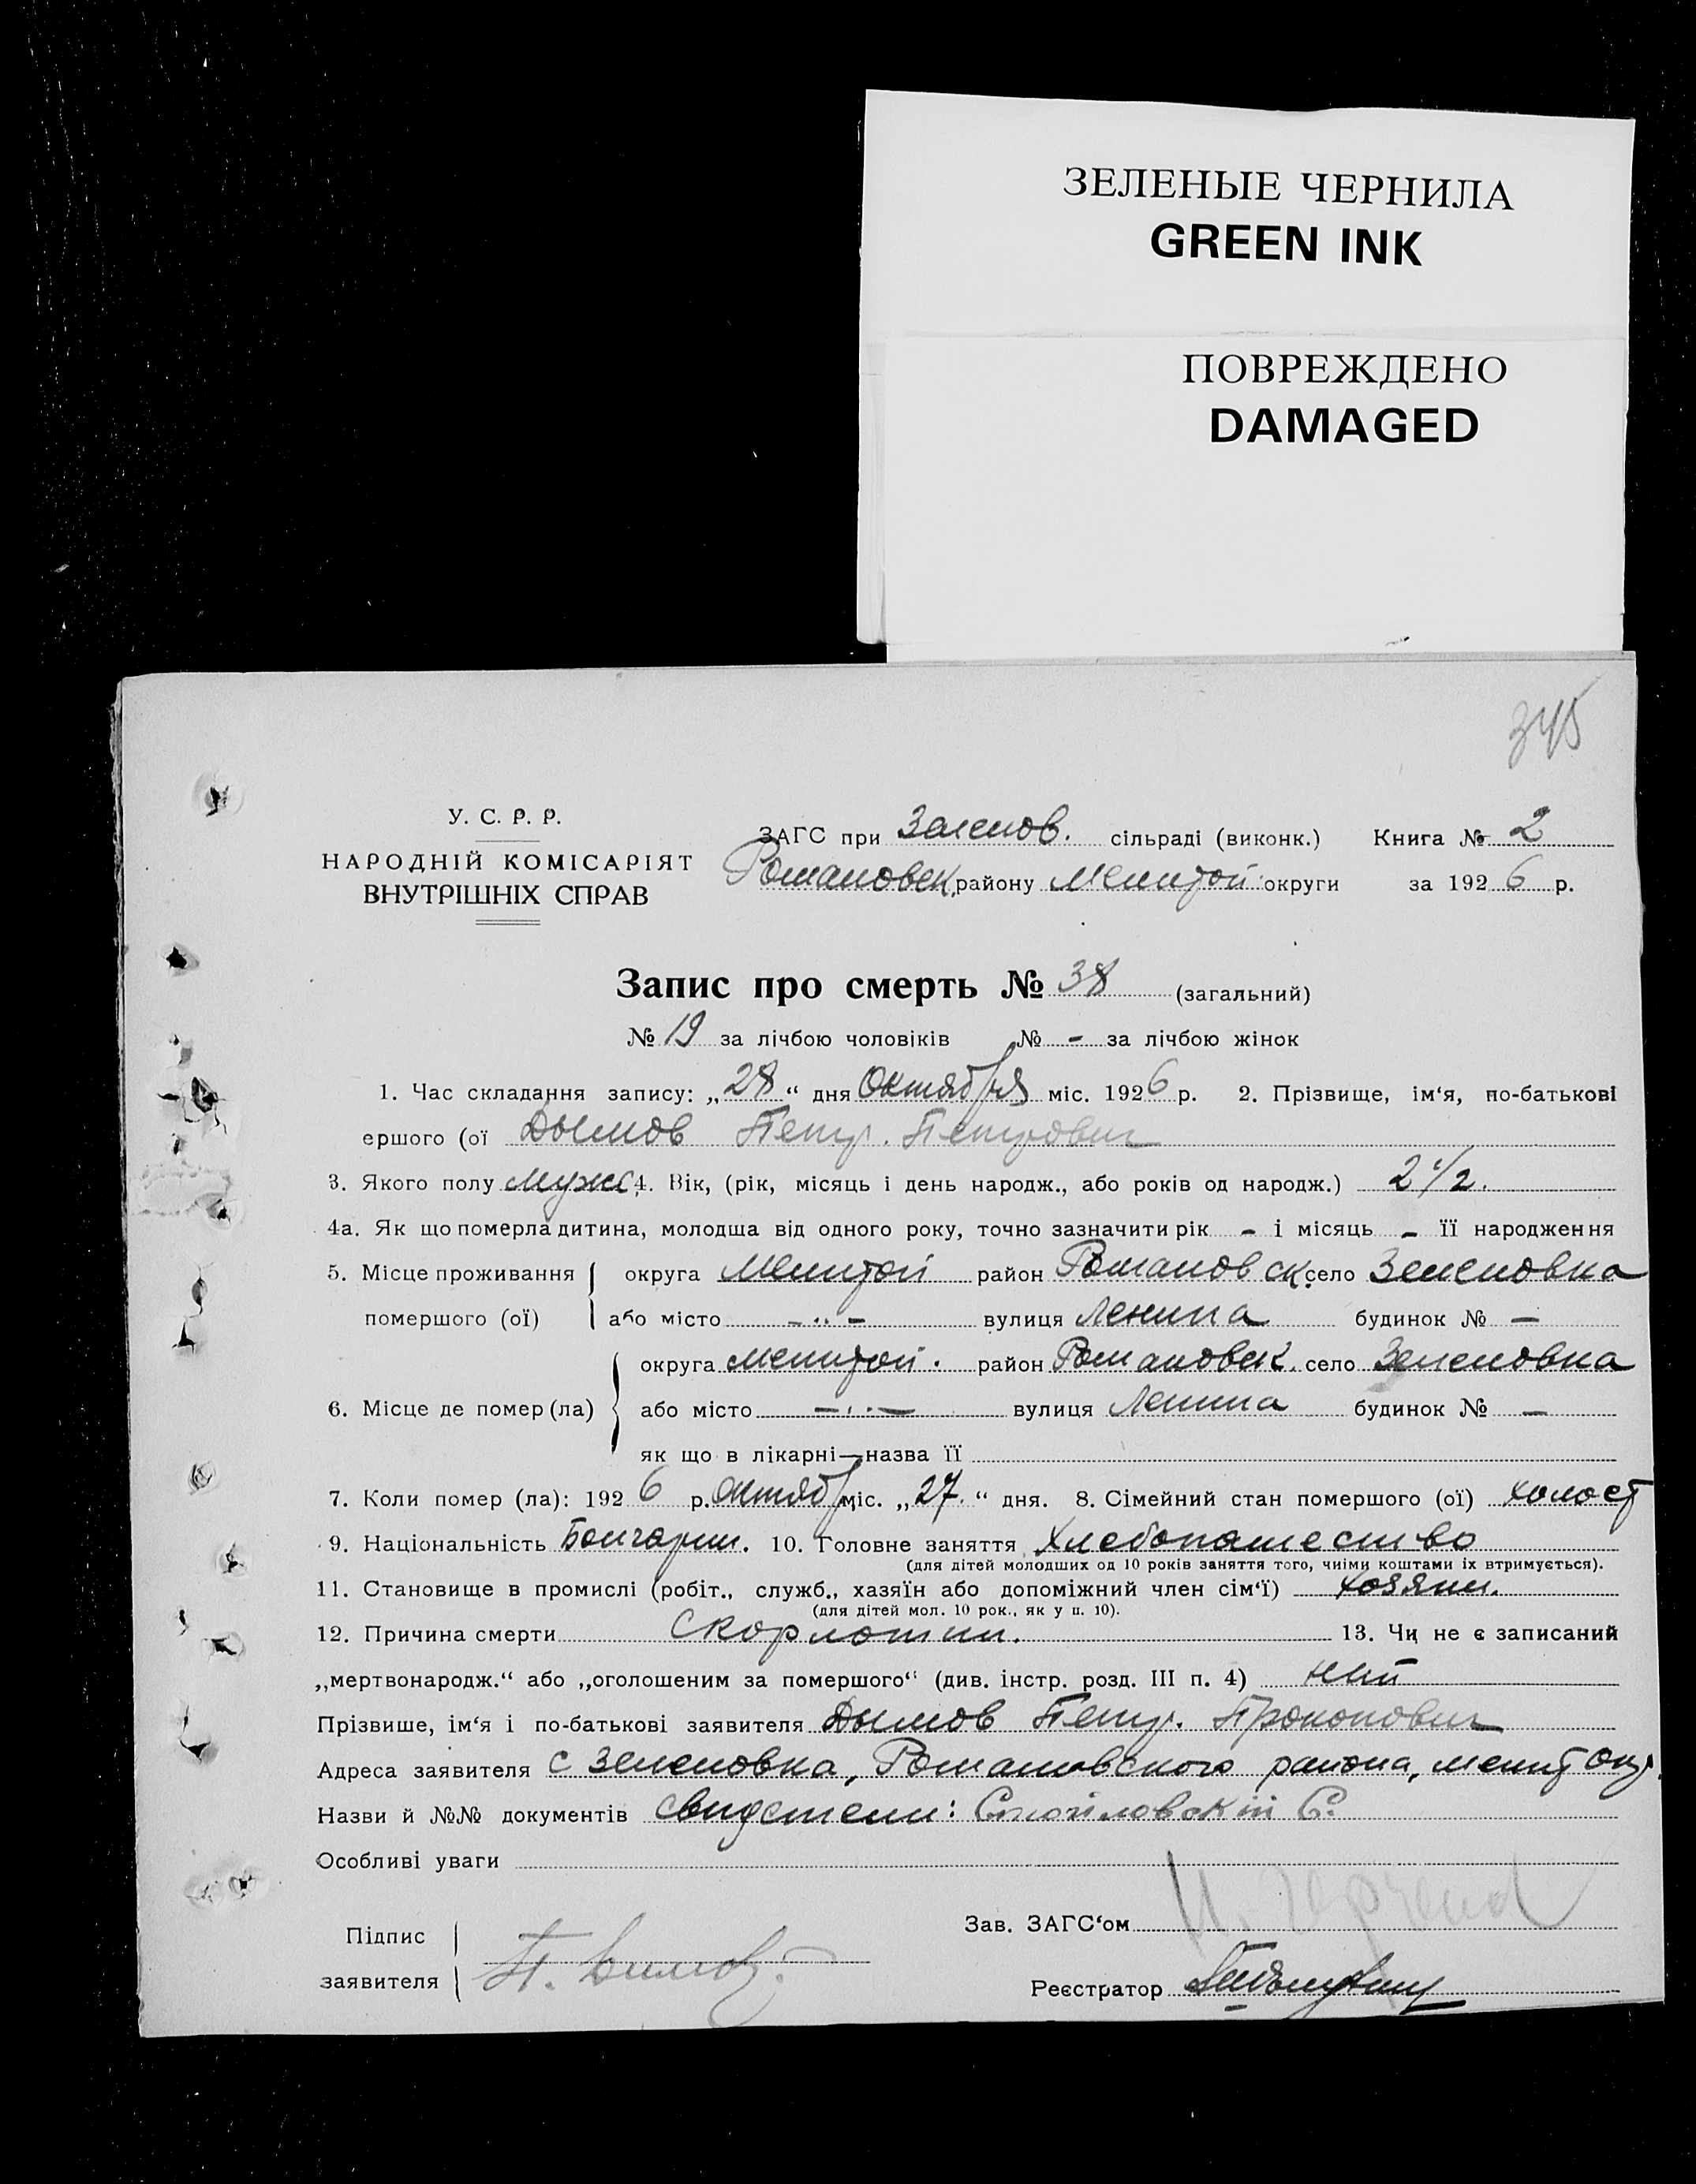 ЗЕЛЕНЫЕ ЧЕРНИЛА
GREEN INK
ПОВРЕЖДЕНО
DAMAGED
345
У. С. Р. Р.
НАРОДНІЙ КОМІСАРІЯТ
ВНУТРІШНІХ СПРАВ
ЗАГС при Зеленов. сільраді (виконк.) Книга № 2
Романовск. району Мелитоп. округи за 1926 р.
Запис про смерть № 38 (загальний)
№ 19 за лічбою чоловіків № - за лічбою жінок
1. Час складання запису: „28“ дня Октября міс. 1926 р. 2. Прізвище, ім‘я, по-батькові
ершого (ої Дымов Петр. Петрович
3. Якого полу мужс. 4. Вік, (рік, місяць і день народж., або років од народж.) 2 1/2.
4а. Як що померла дитина, молодша від одного року, точно зазначити рік - і місяць - її народження
5. Місце проживання округа Мелитоп район Романовск. село Зеленовка
помершого (ої) або місто - „ - вулиця Ленина будинок № —
округа Мелитоп. район Романовск. село Зеленовка
6. Місце де помер (ла) або місто — „ — вулиця Ленина будинок № —
як що в лікарні—назва її
7. Коли помер (ла): 1926 р. октябр міс. „27.“ дня. 8. Сімейний стан помершого (ої) холост
9. Національність Болгарин. 10. Головне заняття Хлебопашество
(для дітей молодших од 10 років заняття того, чиїми коштами їх втримується).
11. Становище в промислі (робіт., служб., хазяїн або допоміжний член сім‘ї) хозяин.
(для дітей мол. 10 рок., як у п. 10).
12. Причина смерти Скорлотин. 13. Чи не є записаний
„мертвонародж.“ або „оголошеним за помершого“ (див. інстр. розд. III п. 4) нит
Прізвише, ім‘я і по-батькові заявителя Дымов Петр. Прокопович
Адреса заявителя с Зеленовка, Романовского района, мелит окр.
Назви й №№ документів свидетели: С.
Особливі уваги
Зав. ЗАГС‘ом
Підпис
заявителя П. Димов.
Реєстратор